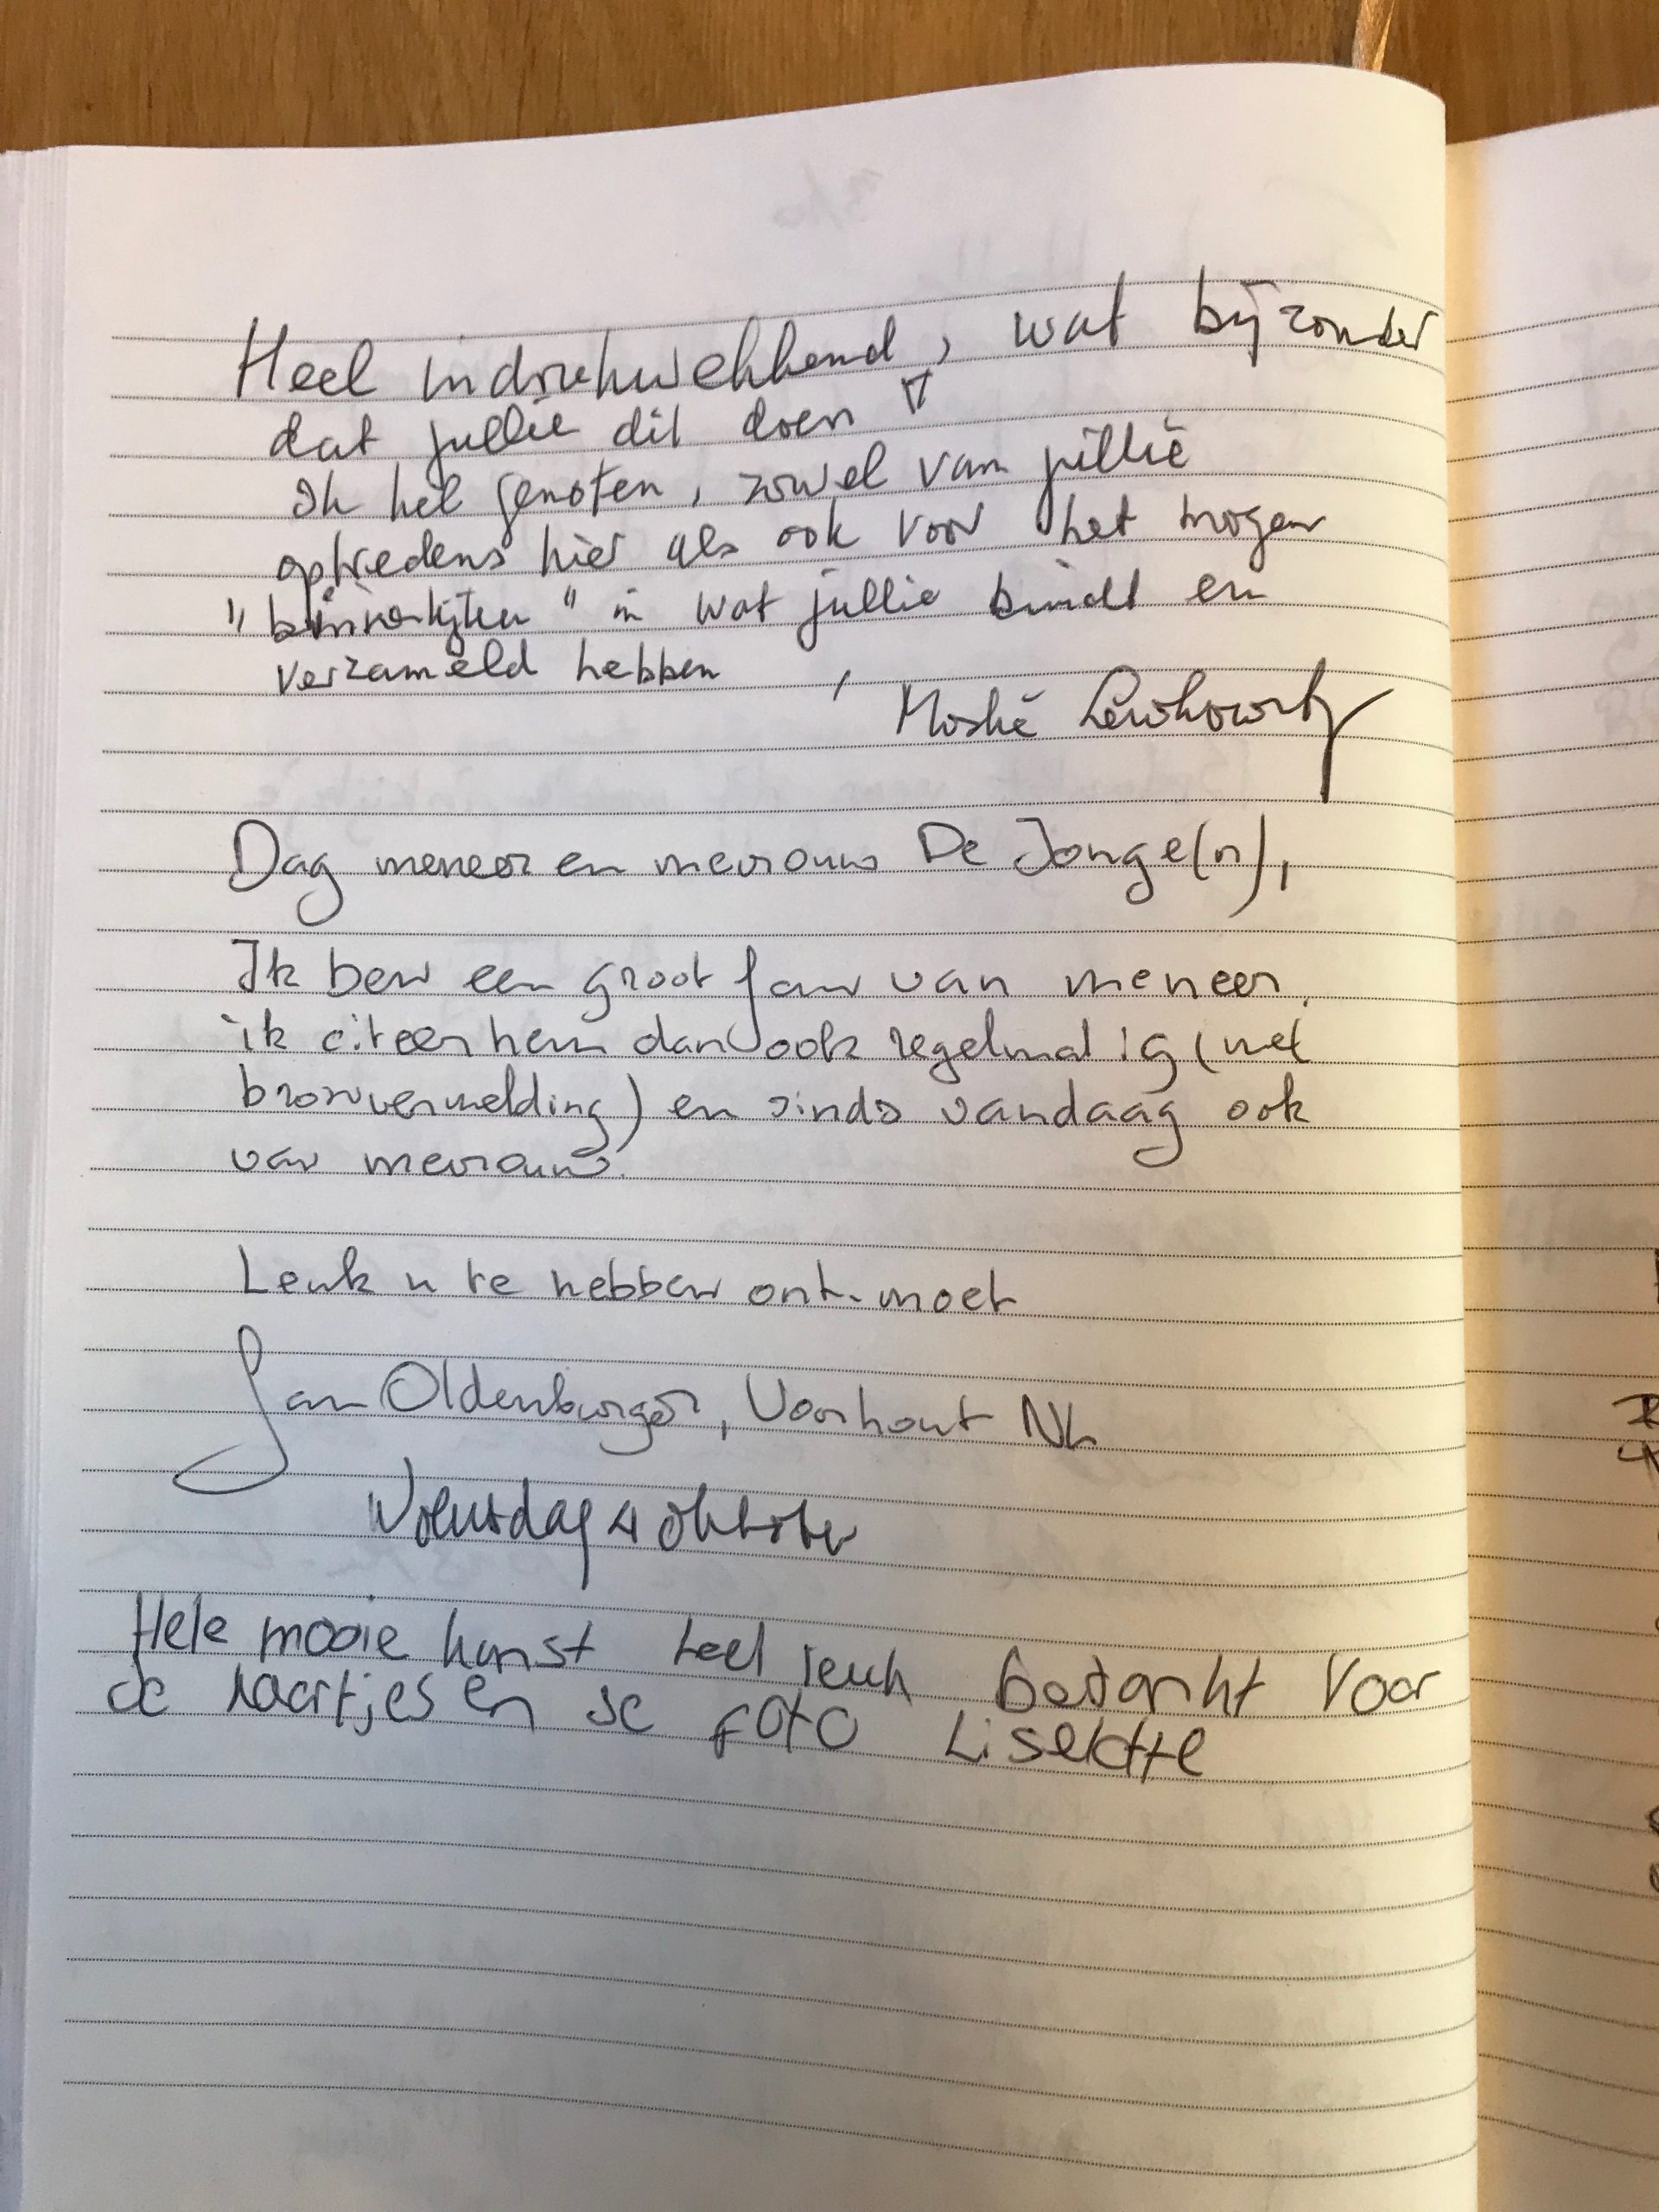 Heel indrukwekkend, wat bijzonder
dat jullie dit doen
Ik heb genoten, zowel van jullie
optredens hier als ook voor het mogen
"binnenkijken" in wat jullie bindt en
verzameld hebben,
Moshé
Dag meneer en mevrouw De Jonge(n),
Ik ben een groot fan van meneer.
ik citeer hem dan ook regelmatig (met
bronvermelding) en sinds vandaag ook
van mevrouw.
Leuk u te hebben ont-moet
Jan Oldenburger, Voorhout NL
Woensdag 4 oktober
Hele mooie kunst heel leuk bedankt voor
de kaartjes en de foto Liselotte